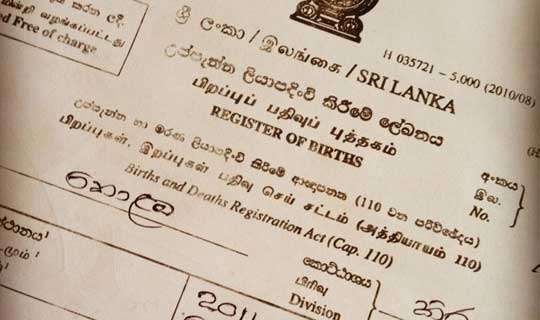 කරන ලදි.
வழங்கப்பட்டது
ed Free of charge
ශ්‍රී ලංකා / இலங்கை / SRI LANKA
H 035721 – 5,000 (2010/08)
උප්පැන්න ලියාපදිංචි කිරීමේ ලේඛනය
பிறப்புப் பதிவுப் புத்தகம்
REGISTER OF BIRTHS
උප්පැන්න හා මරණ ලියාපදිංචි කිරීමේ ආඥාපනත (110 වන පරිච්ඡේදය)
பிறப்புகள், இறப்புகள் பதிவு செய் சட்டம் (அத்தியாயம் 110)
Births and Deaths Registration Act (Cap. 110)
අංකය
இல.
No.
කොට්ඨාසය
பிரிவு
Division
කොළඹ
201